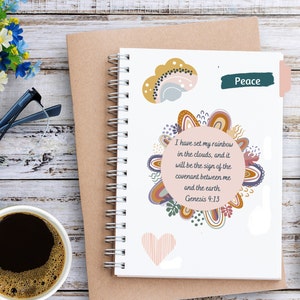 Peace
I have set my rainbow
in the clouds, and it
will be the sign of the
covenant between me
and the earth.
Genesis 4:13